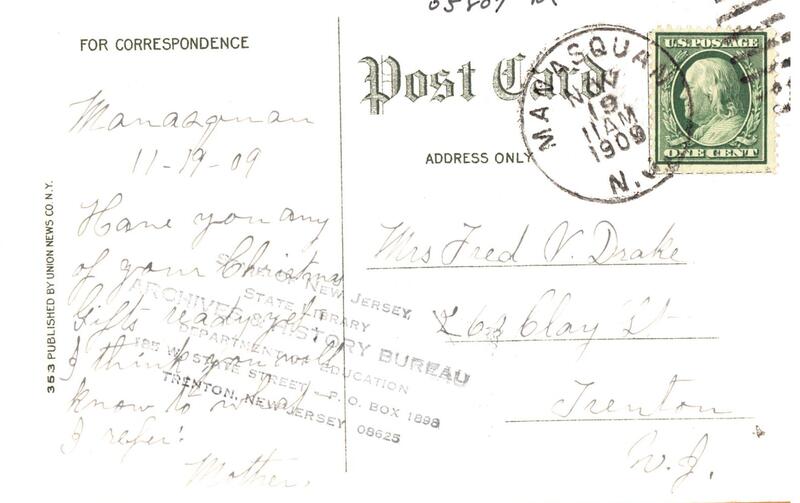 FOR CORRESPONDENCE
Post Card
ADDRESS ONLY
U.S. POSTAGE
ONE CENT
MANASQUAN
NOV
19
11 AM
1909
N.J.
Manasquan
11-19-09
Have you any
of your Christmas
Gifts ready yet!
I think you will
know to what
I refer!
Mother.
Mrs Fred V. Drake
Clay St
Trenton
N.J.
STATE OF NEW JERSEY
STATE LIBRARY
ARCHIVES & HISTORY BUREAU
DEPARTMENT OF EDUCATION
185 W. STATE STREET - P. O. BOX 1898
TRENTON, NEW JERSEY 08625
353 PUBLISHED BY UNION NEWS CO. N.Y.